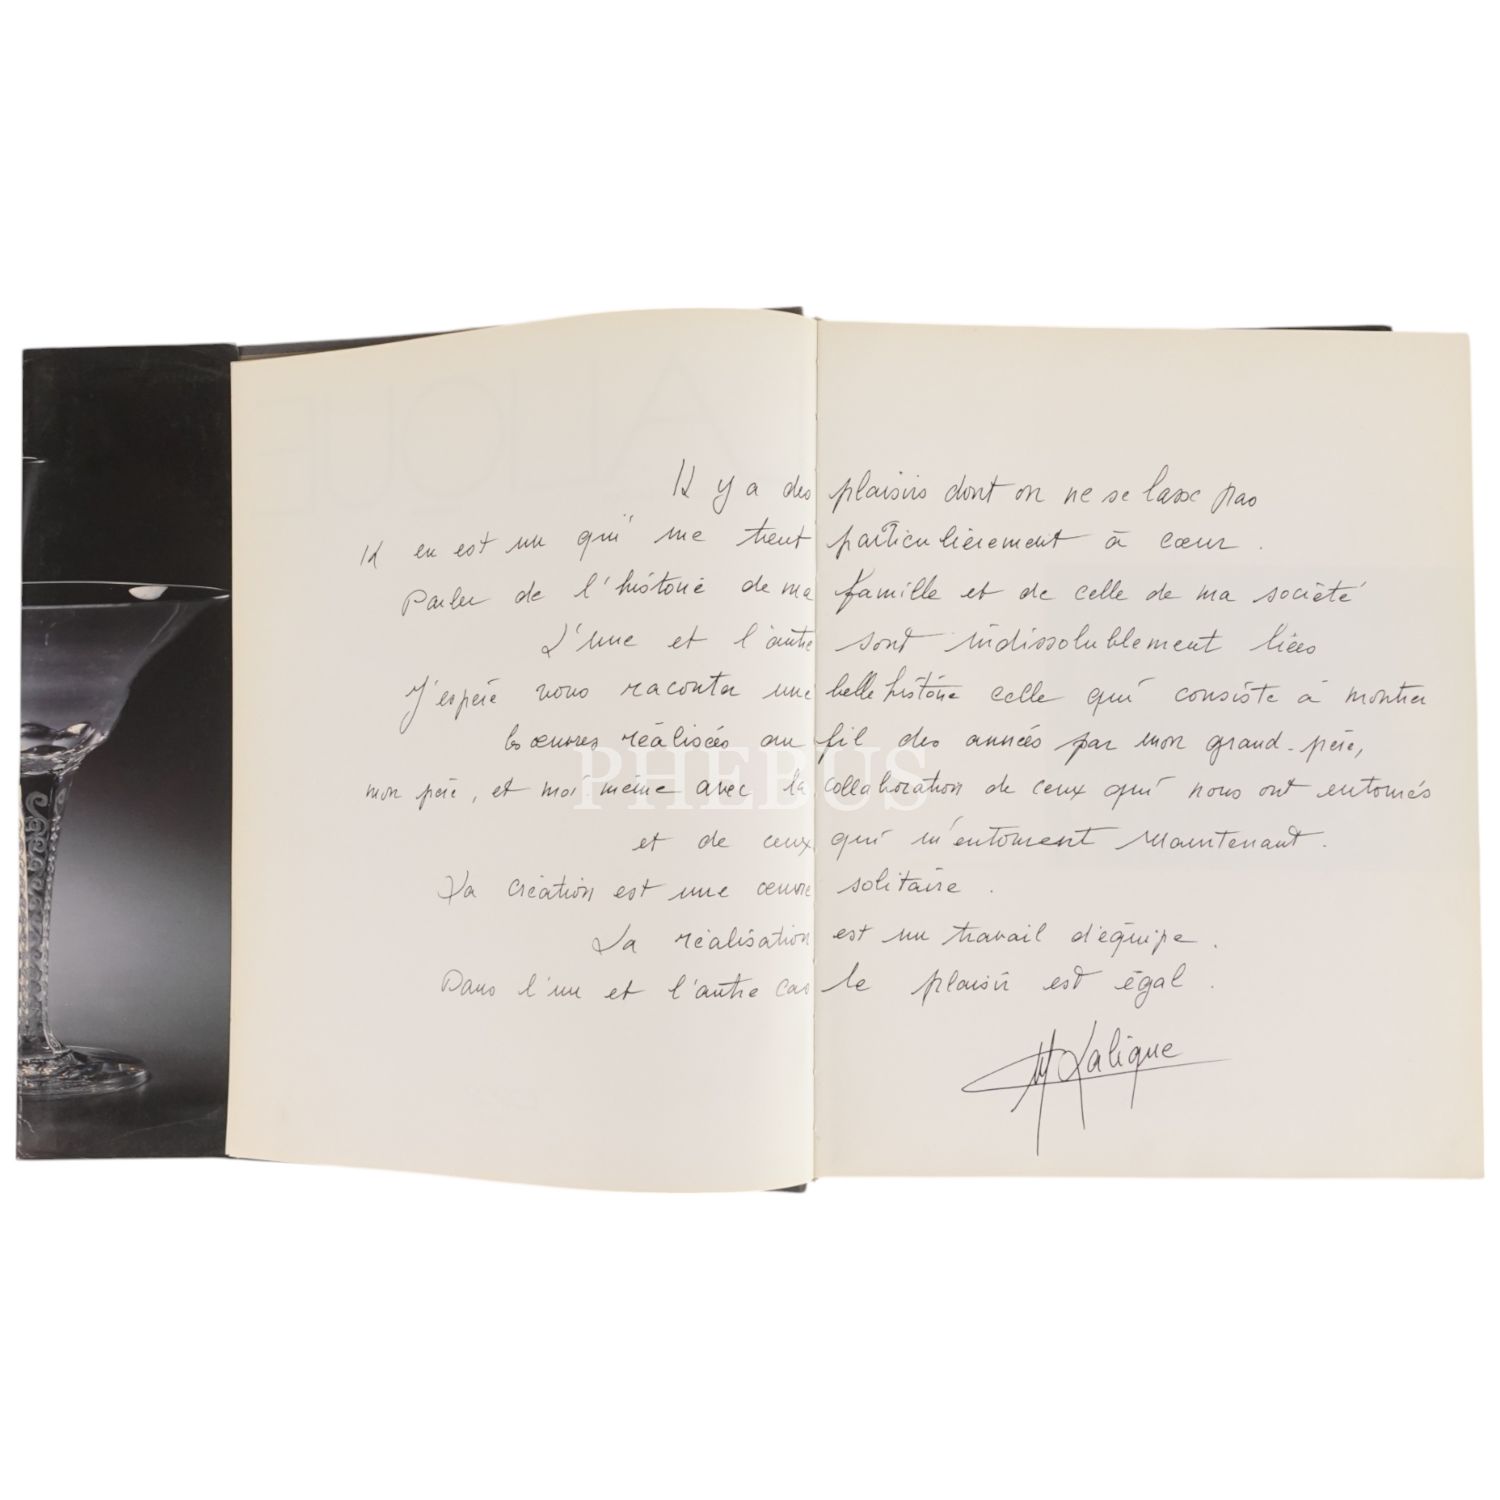 Il y a des plaisirs dont on ne se lasse pas
Il en est un qui me tient particulièrement à cœur.
Parler de l'histoire de ma famille et de celle de ma société
L'une et l'autre sont indissolublement liées
J'espère vous raconter une belle histoire celle qui consiste à montrer
les œuvres réalisées au fil des années par mon grand-père,
mon père, et moi-même avec la collaboration de ceux qui nous ont entourés
et de ceux qui m'entourent maintenant.
La création est une œuvre solitaire.
La réalisation est un travail d'équipe.
Dans l'un et l'autre cas le plaisir est égal.
M Lalique
PHEBUS